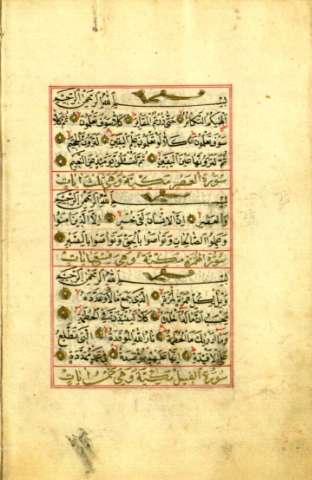 بسم الله الرحمن الرحيم
الهيكم التكاثر حتى زرتم المقابر كلا سوف تعلمون ثم كلا
سوف تعلمون كلا لو تعلمون علم اليقين لترون الجحيم
ثم لترونها عين اليقين ثم لتسئلن يومئذ عن النعيم
سورة العصر مكية وهي ثلث ايات
بسم الله الرحمن الرحيم
والعصر ان الانسان لفي خسر الا الذين امنوا
وعملوا الصالحات وتواصوا بالحق وتواصوا بالصبر
سورة الهمزة مكية وهي تسع ايات
بسم الله الرحمن الرحيم
ويل لكل همزة لمزة الذي جمع مالا وعدده
يحسب ان ماله اخلده كلا لينبذن في الحطمة
وما ادريك ما الحطمة نار الله الموقدة التي تطلع
على الافئدة انها عليهم مؤصدة في عمد ممددة
سورة الفيل مكية وهي خمس ايات